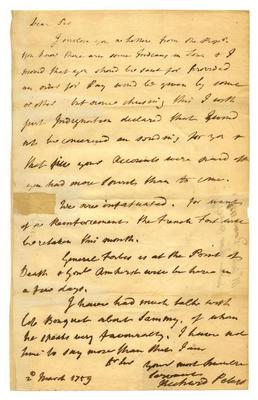 Dear Sir
I enclose you a letter from the
You know there are some Indians in Town & I
moved that you should be sent for provided
an order for Pay would be given by some
or other but none chusing this I with
just Indignation declared that I would
not be concerned in sending for you &
that till your Accounts were paid off
you had more Sounds than to come.
We are infatuated. For want
of a Reinforcement the French Fort will
be retaken this month.
General Forbes is at the Point of
Death & Genl Amherst will be here in
a few days.
I have had much talk with
Col Bouquet about Sammy, of whom
he speaks very favourably. I have not
time to say more than that I am
Dr Sir
Your most humble
Servant
Richard Peters
2d March 1759